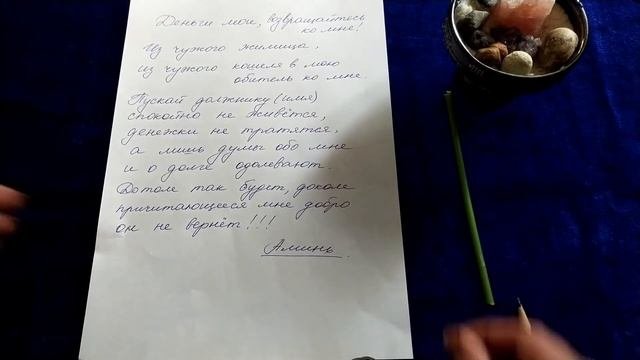 Деньги мои, возвращайтесь
ко мне!
Из чужого жилища,
из чужого кошеля в мою
обитель ко мне.
Пускай должнику (имя)
спокойно не живётся,
денежки не тратятся,
а лишь думы обо мне
и о долге одолевают.
Дотоле так будет, доколе
причитающееся мне добро
он не вернёт!!!
Аминь.